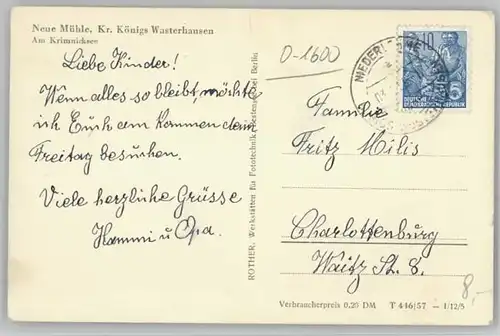 Neue Mühle, Kr. Königs Wusterhausen
Am Krimnicksee
Liebe Kinder!
Wenn alles so bleibt, möchte
ich Euch am kommen den
Freitag besuchen.
Viele herzliche Grüsse
Hammi u Opa.
ROTHER, Werkstätten für Fototechnik, bei Berlin
0-1600
NIEDERL
10
5
DEUTSCHE
DEMOKRATISCHE REPUBLIK
Familie
Fritz Milis
Charlottenburg
Waitz St. 8.
8,-
Verbraucherpreis 0,25 DM T 446/57 – 1/12/5